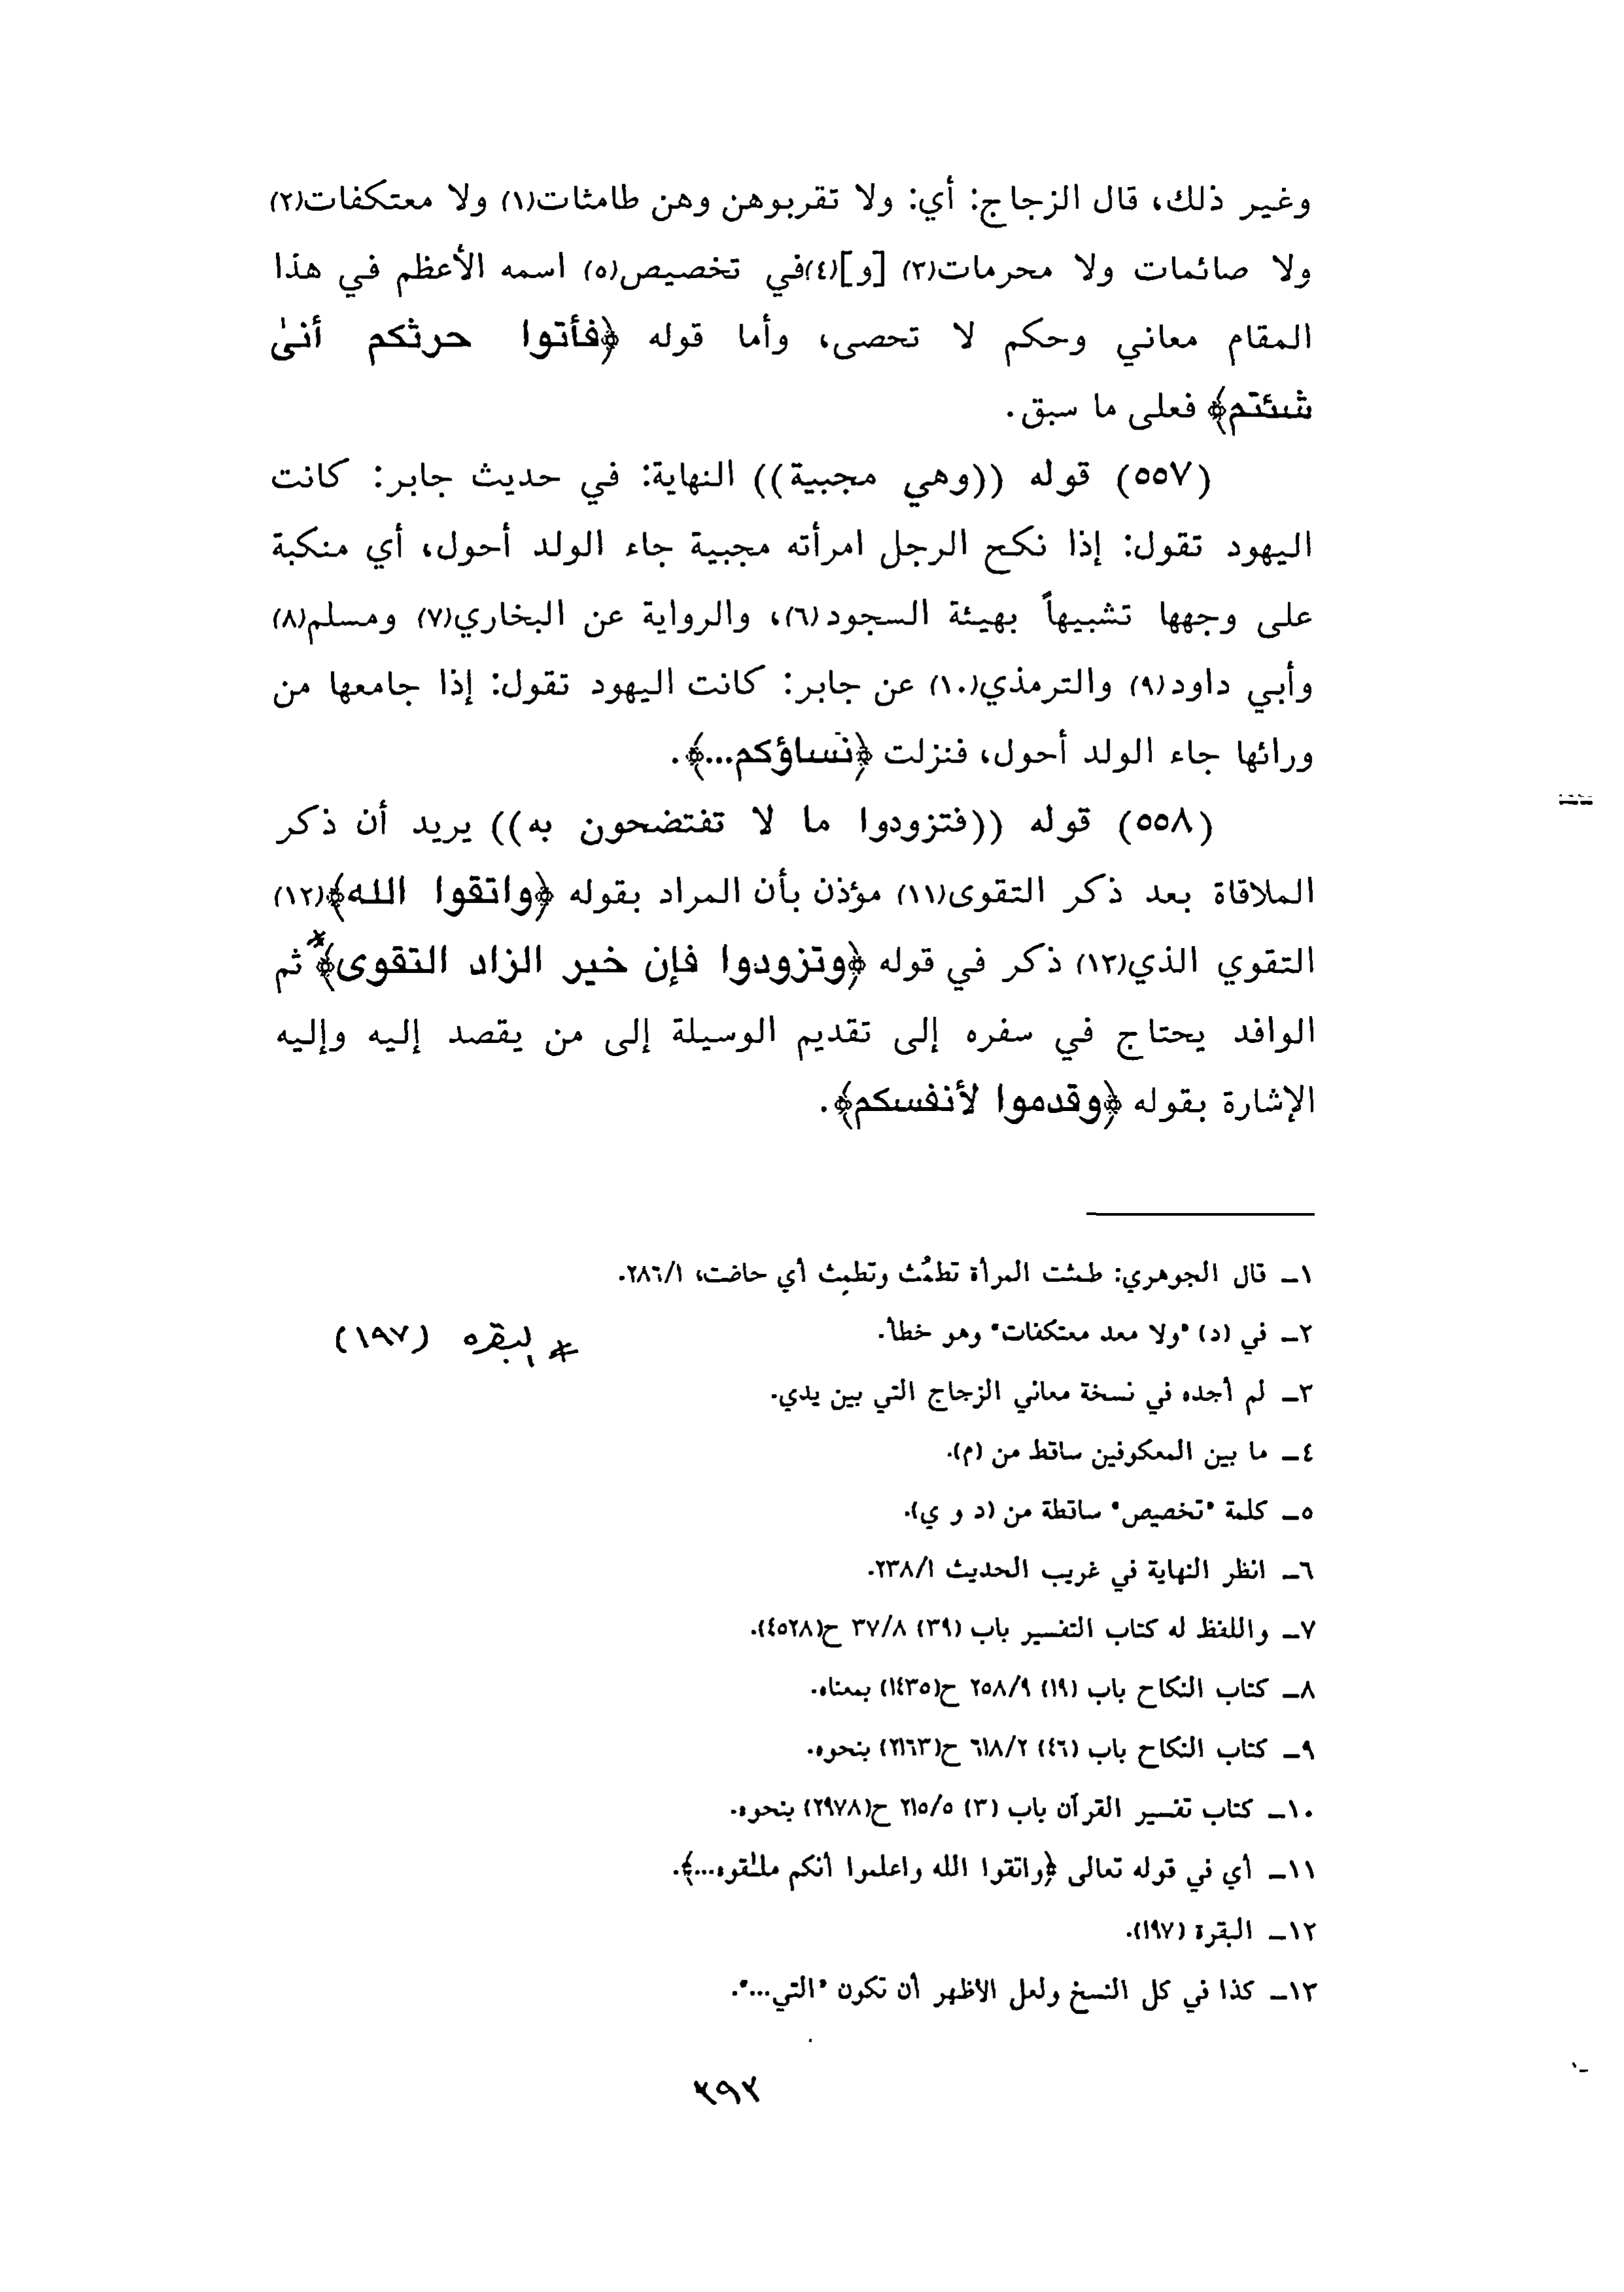 وغير ذلك، قال الزجاج: أي: ولا تقربوهن وهن طامثات(١) ولا معتكفات(٢)
ولا صائمات ولا محرمات(٣) [و](٤)في تخصيص(٥) اسمه الأعظم في هذا
المقام معاني وحكم لا تحصى، وأما قوله ﴿فأتوا حرثكم أنىٰ
شئتم﴾ فعلى ما سبق.
(٥٥٧) قوله ((وهي مجبية)) النهاية: في حديث جابر: كانت
اليهود تقول: إذا نكح الرجل امرأته مجبية جاء الولد أحول، أي منكبة
على وجهها تشبيهاً بهيئة السجود(٦)، والرواية عن البخاري(٧) ومسلم(٨)
وأبي داود(٩) والترمذي(١٠) عن جابر: كانت اليهود تقول: إذا جامعها من
ورائها جاء الولد أحول، فنزلت ﴿نساؤكم...﴾.
(٥٥٨) قوله ((فتزودوا ما لا تفتضحون به)) يريد أن ذكر
الملاقاة بعد ذكر التقوى(١١) مؤذن بأن المراد بقوله ﴿واتقوا الله﴾(١٢)
التقوي الذي(١٣) ذكر في قوله ﴿وتزودوا فإن خير الزاد التقوى﴾* ثم
الوافد يحتاج في سفره إلى تقديم الوسيلة إلى من يقصد إليه وإليه
الإشارة بقوله ﴿وقدموا لأنفسكم﴾.
١ـ قال الجوهري: طمثت المرأة تطمُث وتطمِث أي حاضت، ٢٨٦/١.
٢ـ في (د) "ولا معد معتكفات" وهو خطأ.
* البقره (١٩٧)
٣ـ لم أجده في نسخة معاني الزجاج التي بين يدي.
٤ـ ما بين المعكوفين ساقط من (م).
٥ـ كلمة "تخصيص" ساقطة من (د و ي).
٦ـ انظر النهاية في غريب الحديث ٢٣٨/١.
٧ـ واللفظ له كتاب التفسير باب (٣٩) ٣٧/٨ ح(٤٥٢٨).
٨ـ كتاب النكاح باب (١٩) ٢٥٨/٩ ح(١٤٣٥) بمعناه.
٩ـ كتاب النكاح باب (٤٦) ٦١٨/٢ ح(٢١٦٣) بنحوه.
١٠ـ كتاب تفسير القرآن باب (٣) ٢١٥/٥ ح(٢٩٧٨) بنحوه.
١١ـ أي في قوله تعالى ﴿واتقوا الله واعلموا أنكم ملٰقوه...﴾.
١٢ـ البقرة (١٩٧).
١٣ـ كذا في كل النسخ ولعل الاظهر أن تكون "التي...".
٢٩٢